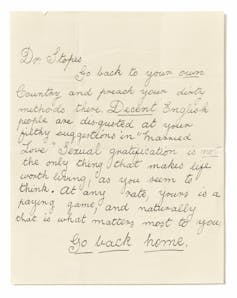 Dr. Stopes
Go back to your own
Country and preach your dirty
methods there. Decent English
people are disgusted at your
filthy suggestions in "Married
Love" Sexual gratification is not
the only thing that makes life
worth living, as you seem to
think. At any rate, yours is a
paying game, and naturally
that is what matters most to you
Go back home.